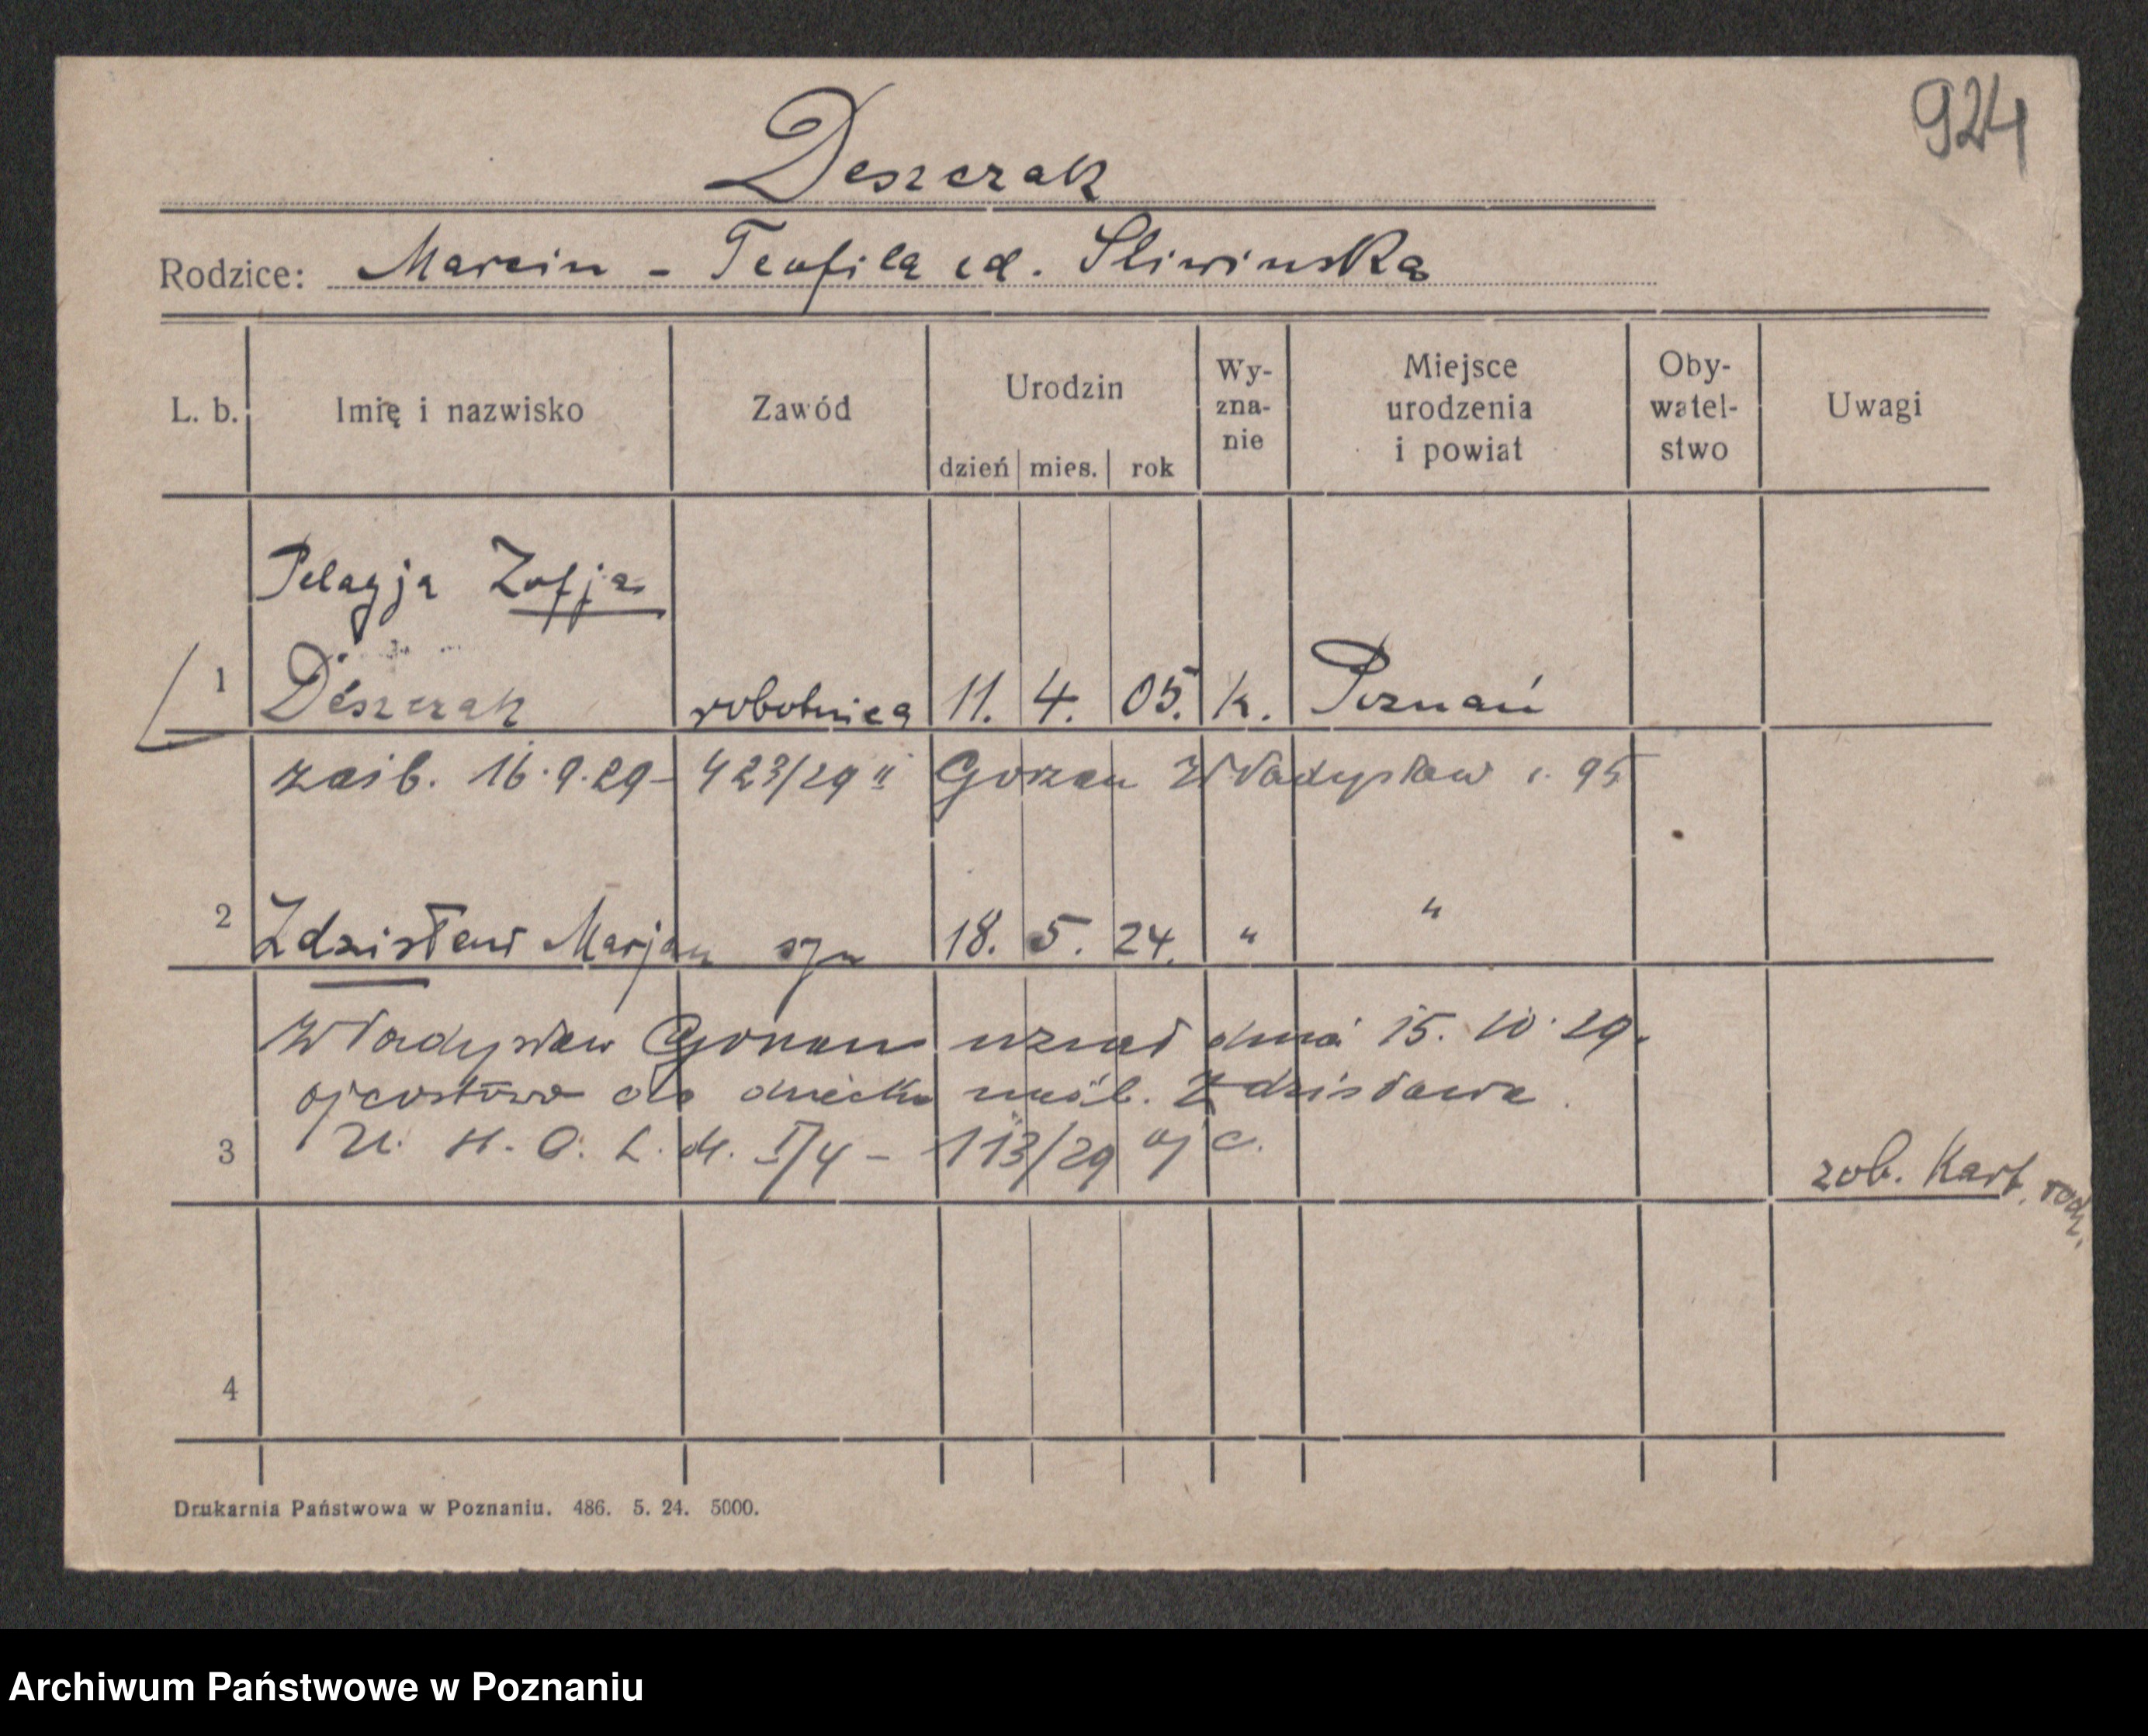 924
Deszczak
Rodzice: Marcin - Teofila cd. Sliwinska
L. b. Imię i nazwisko Zawód Urodzin dzień mies. rok Wy-zna-nie Miejsce urodzenia i powiat Oby-watel-stwo Uwagi
Pelagja Zofja
1 Deszczak robotnica 11. 4. 05. k. Poznań
zaśb. 16.9.29 - 423/29 II Gorzan Władysław r. 95
2 Zdzisław Marjan syn 18. 5. 24. " "
Władysław uznał dnia 15. 10. 29.
ojcostwo do dziecka nieśl. Zdzisława.
3 I/4 - 113/29 ojc. zob. Kart. rodz.
4
Drukarnia Państwowa w Poznaniu. 486. 5. 24. 5000.
Archiwum Państwowe w Poznaniu